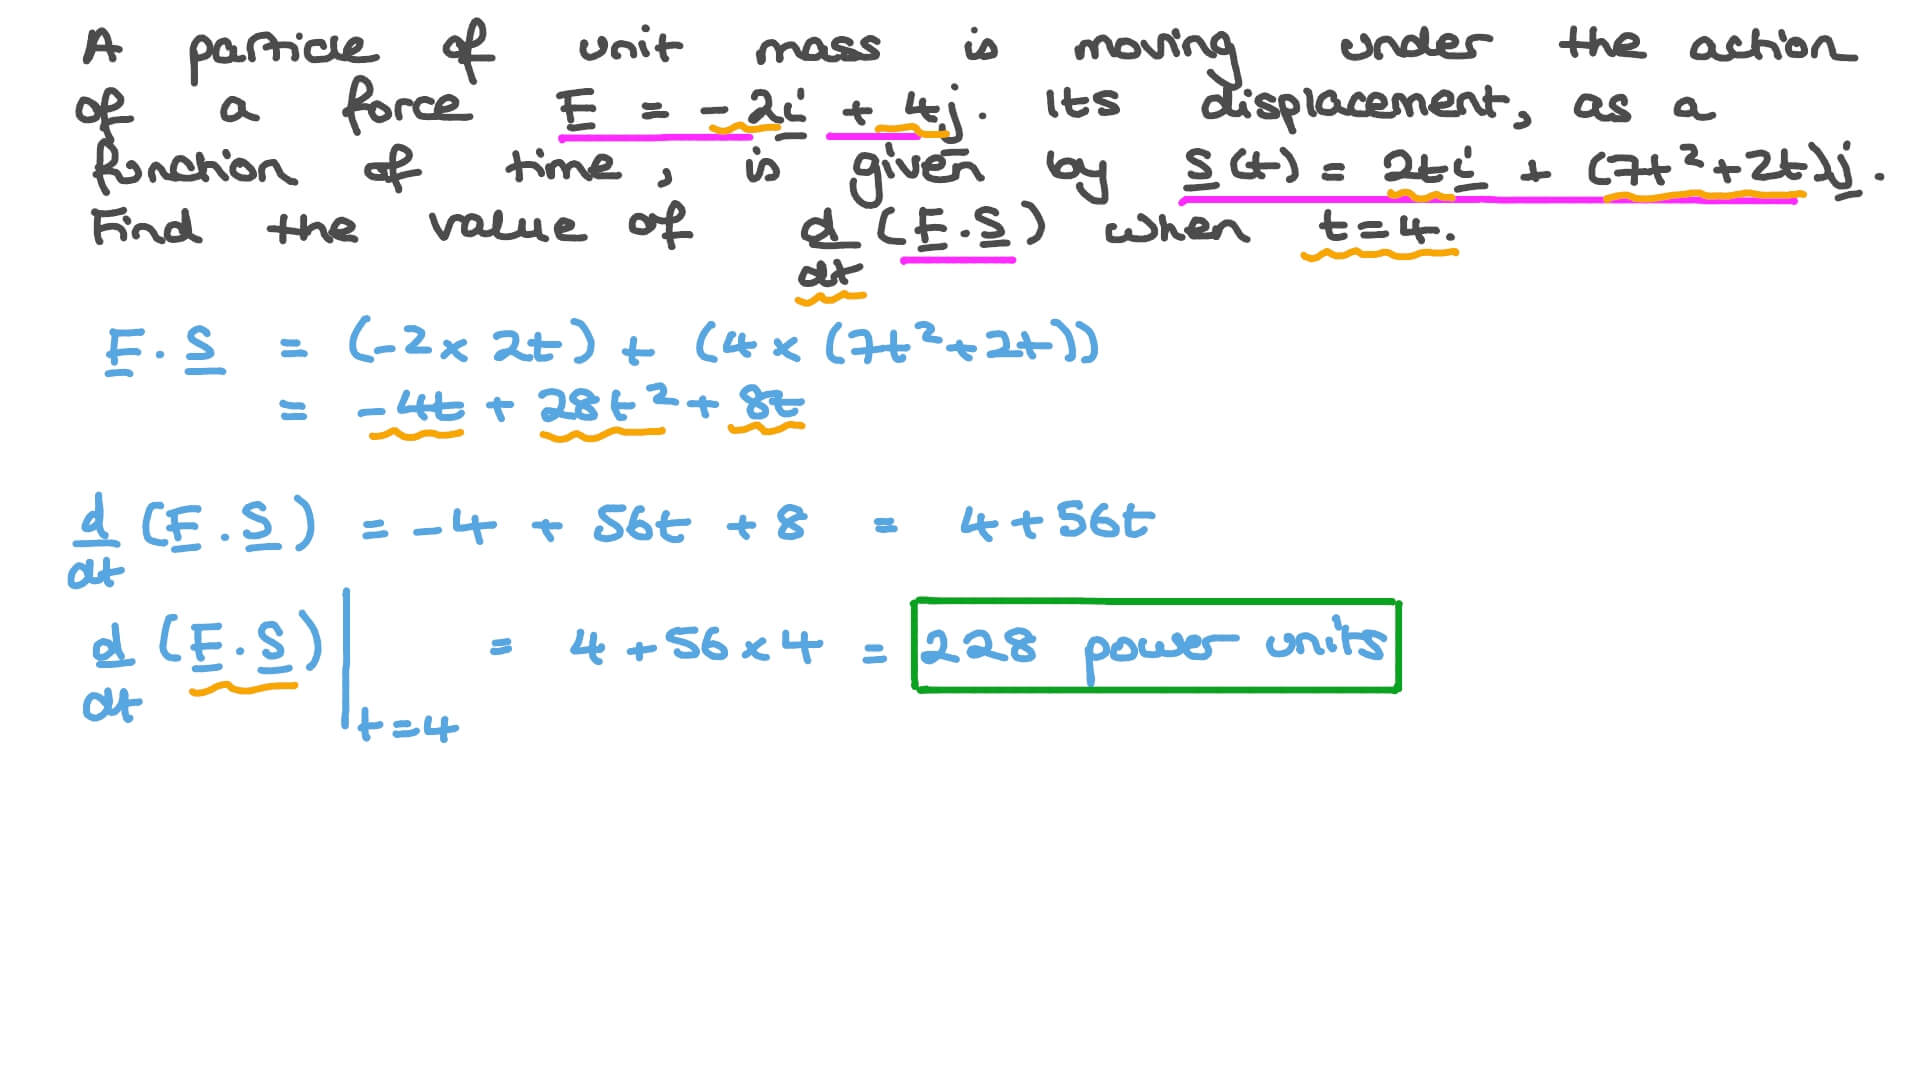 A particle of unit mass is moving under the action
of a force F = -2i + 4j. Its displacement, as a
function of time, is given by S(t) = 2ti + (7t²+2t)j.
Find the value of d/dt (F.S) when t=4.
F.S = (-2× 2t) + (4 × (7t²+2t))
= -4t + 28t² + 8t
d/dt (F.S) = -4 + 56t + 8 = 4+56t
d/dt (F.S)|t=4 = 4 +56×4 = 228 power units